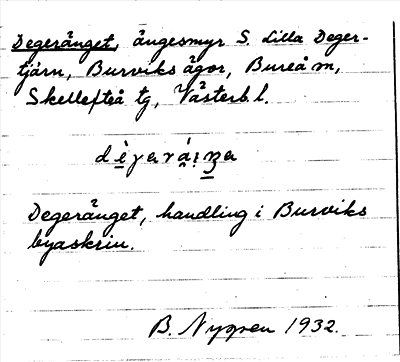 Degeränget, ängesmyr S. Lilla Deger-
tjärn, Burviks ägor, Bureå sn,
Skellefteå tg, Västerb. l.
Degeränget, handling i Burviks
byaskrin.
B. Nygren 1932.